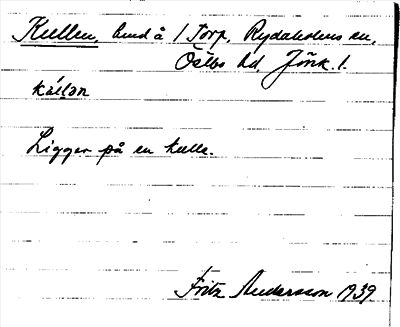 Kullen, lund å 1 Torp, Rydaholms sn,
Östbo hd, Jönk. l.
kúllən
Ligger på en kulle.
Fritz Andersson 1939